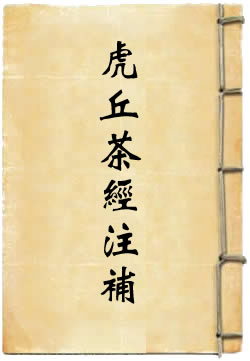 虎丘茶經注補